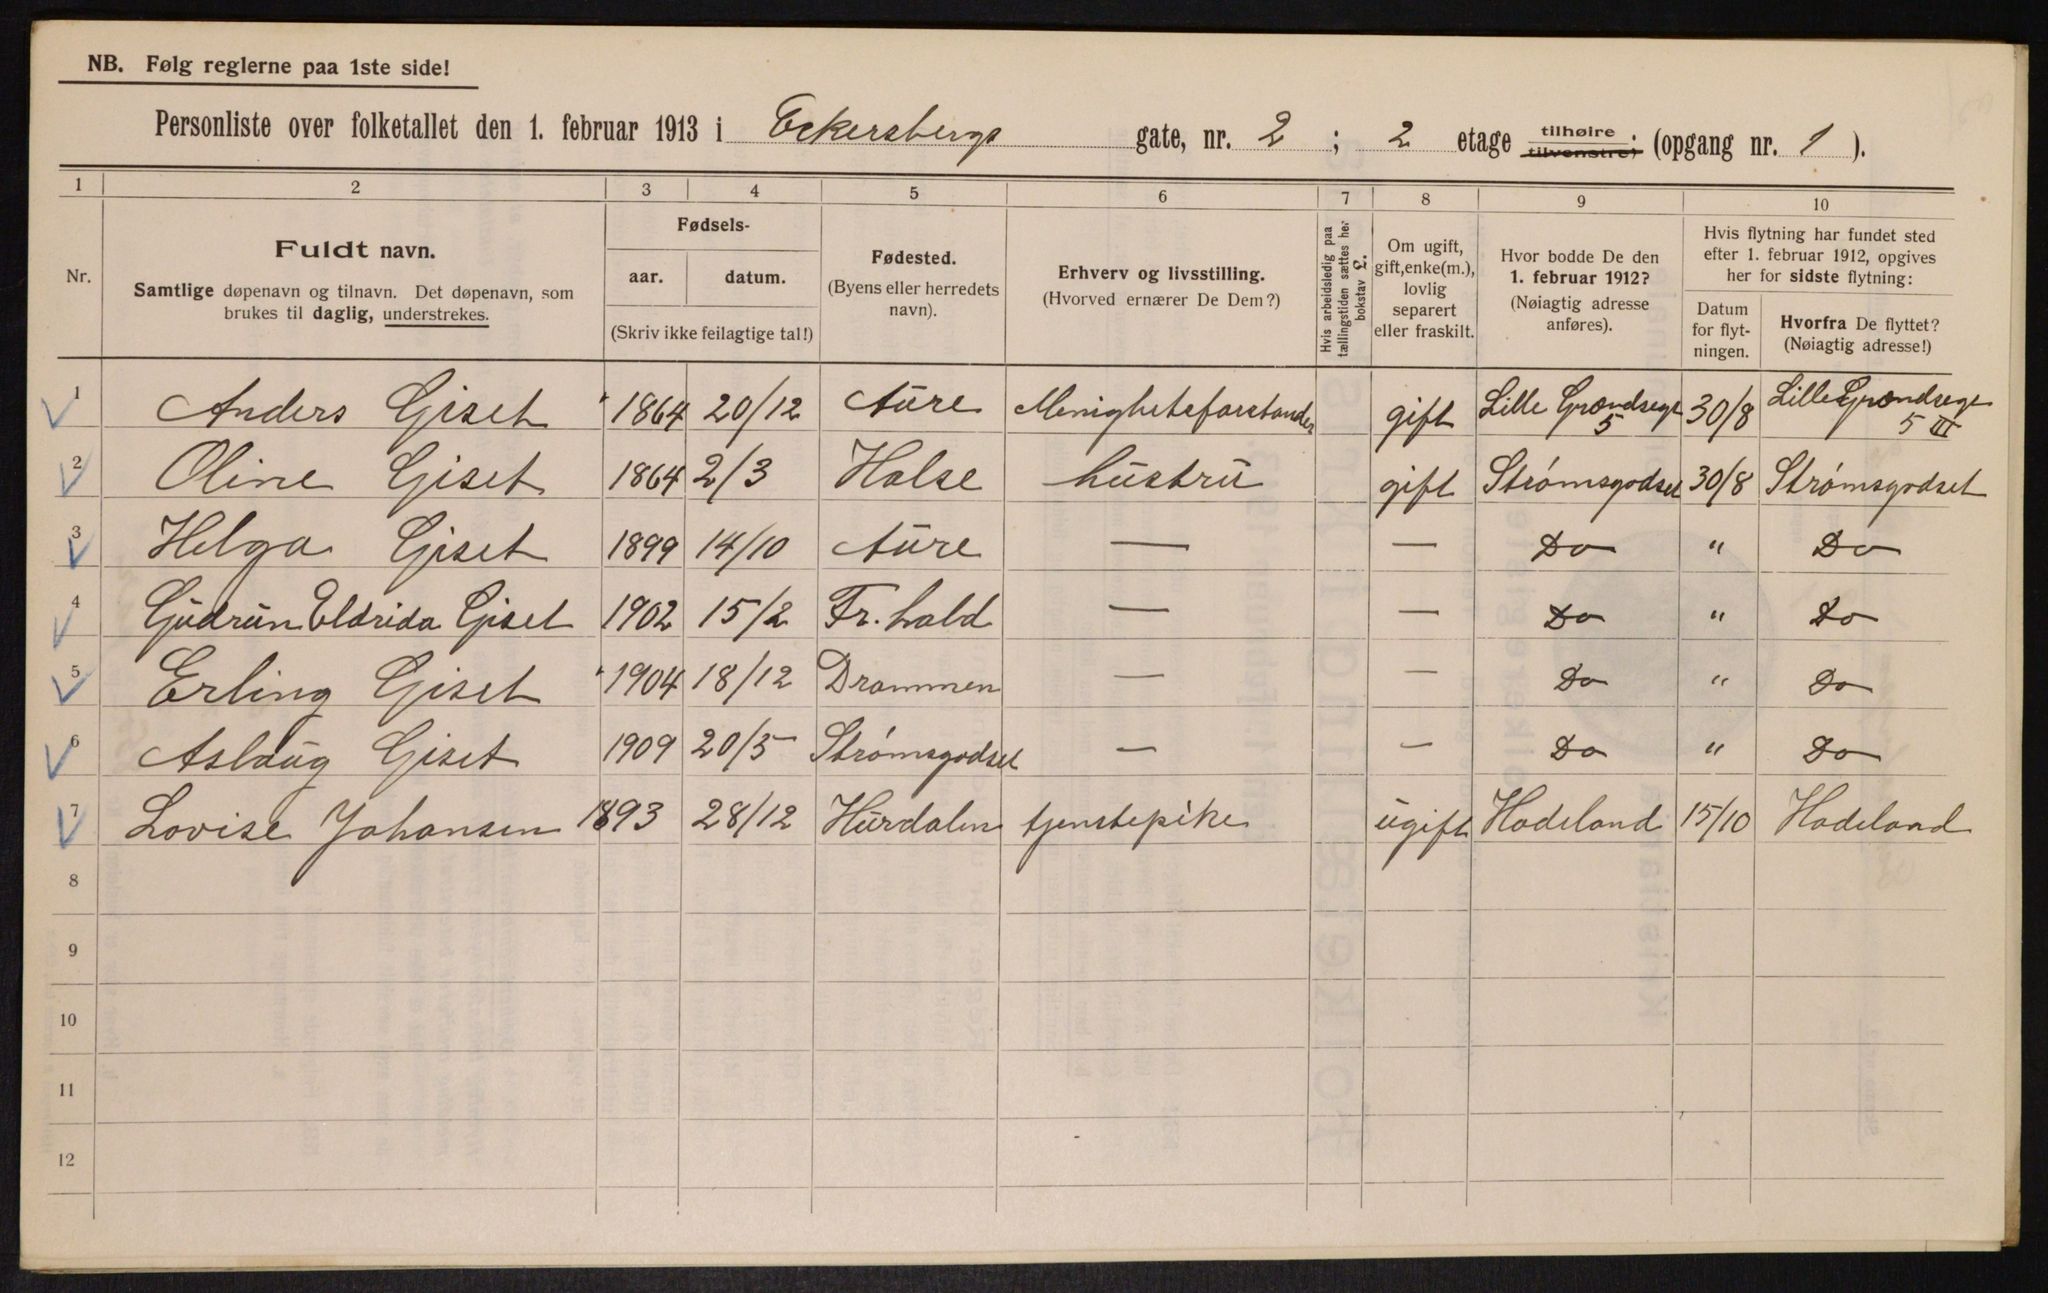 NB. Følg reglerne paa 1ste side!
Personliste over folketallet den 1. februar 1913 i Eckersbergs gate, nr. 2 ; 2 etage tilhøire tilvenstre; (opgang nr. 1 ).
1 2 3 4 5 6 7 8 9 10
Nr.
Fuldt navn.
Samtlige døpenavn og tilnavn. Det døpenavn, som
brukes til daglig, understrekes.
Fødsels-
aar. datum.
(Skriv ikke feilagtige tal!)
Fødested.
(Byens eller herredets
navn).
Erhverv og livsstilling.
(Hvorved ernærer De Dem?)
Hvis arbeidsledig paa
tællingstiden sættes her
bokstav L.
Om ugift,
gift, enke(m.),
lovlig
separert
eller fraskilt.
Hvor bodde De den
1. februar 1912?
(Nøiagtig adresse
anføres).
Hvis flytning har fundet sted
efter 1. februar 1912, opgives
her for sidste flytning:
Datum
for flyt-
ningen.
Hvorfra De flyttet?
(Nøiagtig adresse!)
1 Anders Giset 1864 20/12 Aure Menighetsforstander gift Lille Grændsegt 5 30/8 Lille Grændsegt 5 III
2 Oline Giset 1864 2/3 Halse hustru gift Strømsgodset 30/8 Strømsgodset
3 Helga Giset 1899 14/10 Aure — — Do " Do
4 Gudrun Eldrida Giset 1902 15/2 Fr.hald — — Do " Do
5 Erling Giset 1904 18/12 Drammen — — Do " Do
6 Aslaug Giset 1909 20/5 Strømsgodset — — Do " Do
7 Lovise Johansen 1893 28/12 Hurdalen tjenstepike ugift Hadeland 15/10 Hadeland
8
9
10
11
12